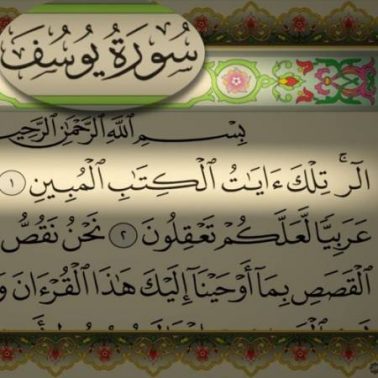 سُورَةُ يُوسُفَ
بِسْمِ اللَّهِ الرَّحْمَٰنِ الرَّحِيمِ
الٓر ۚ تِلْكَ ءَايَٰتُ ٱلْكِتَٰبِ ٱلْمُبِينِ ١
عَرَبِيًّا لَّعَلَّكُمْ تَعْقِلُونَ ٢ نَحْنُ نَقُصُّ
ٱلْقَصَصِ بِمَآ أَوْحَيْنَآ إِلَيْكَ هَٰذَا ٱلْقُرْءَانَ